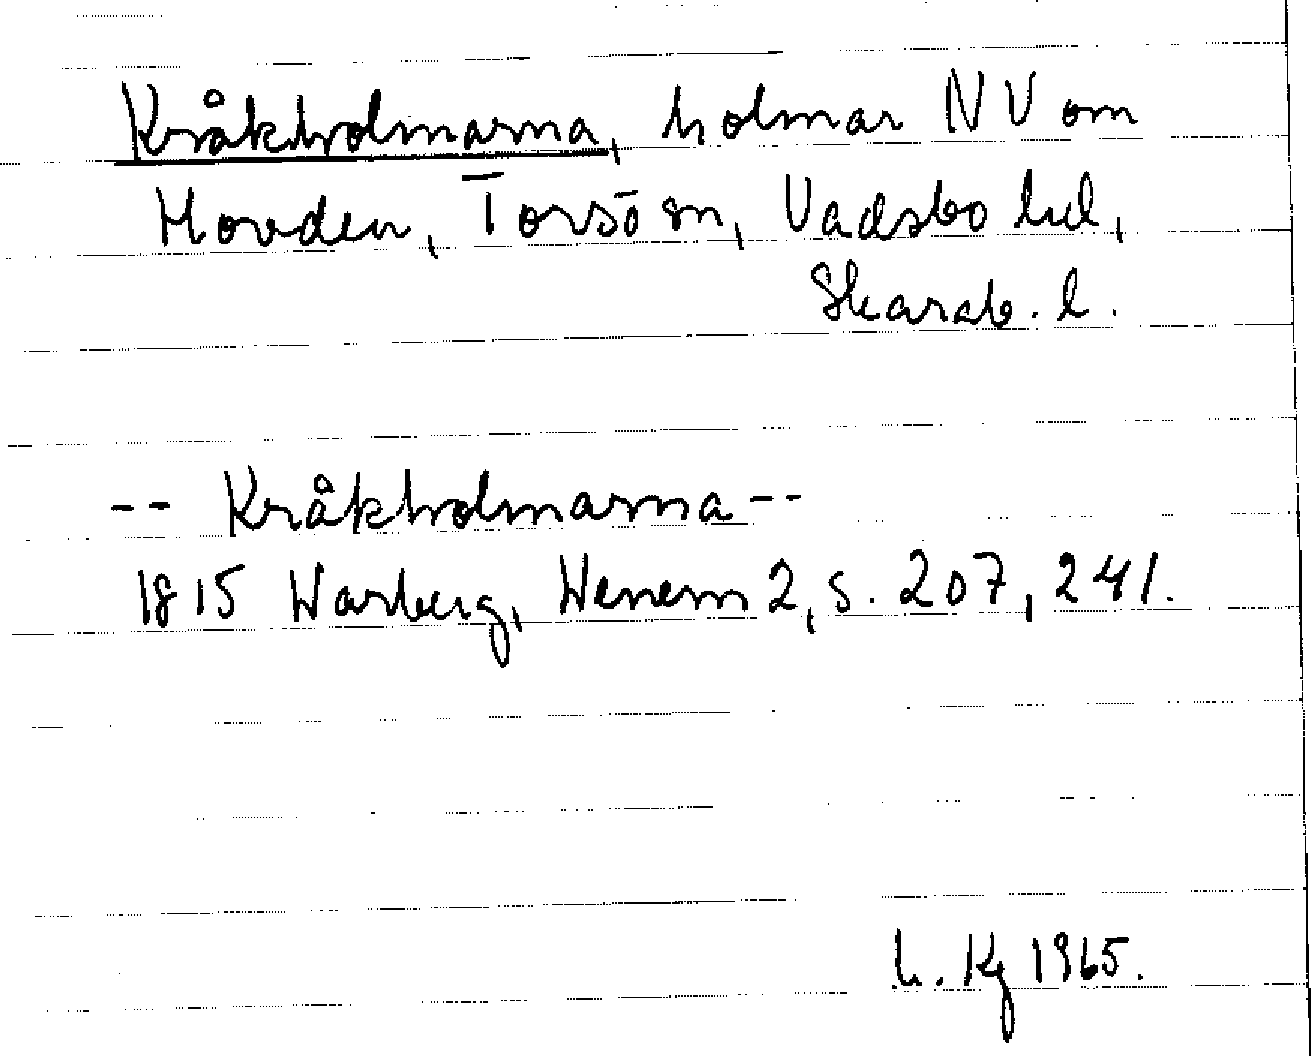 Kråkholmarna, holmar NV om
Hovden, Torsö sn, Vadsbo hd,
Skarab. l.
-- Kråkholmarna --
1815 Warberg, Wenern 2, s. 207, 241.
L. Kg 1965.